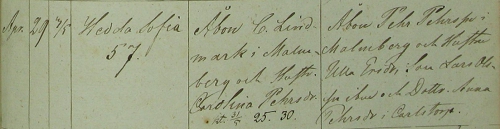 Apr. 29 7/5 Hedda Sofia
57.
Åbon C. Lind-
mark i Malm-
berg och Hustr.
Carolina Pehrsdr
at. 31/5 25. 30.
Åbon Pehr Pehrsson i
Malmberg och Hustru
Ulla Ersdr, Son Lars Ols-
son ibm och Dottr. Anna
Pehrsdr i Carlstorp.